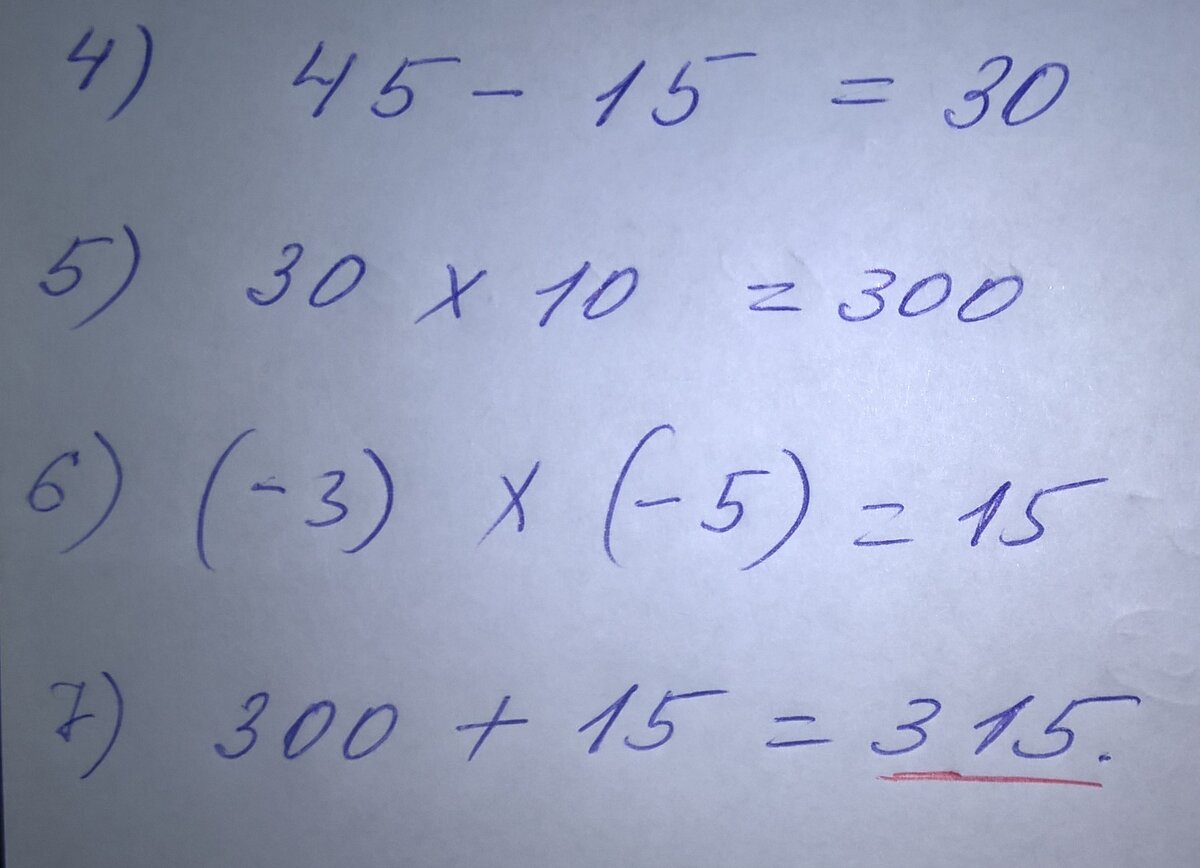 4) 45 - 15 = 30
5) 30 x 10 = 300
6) (-3) x (-5) = 15
7) 300 + 15 = 315.